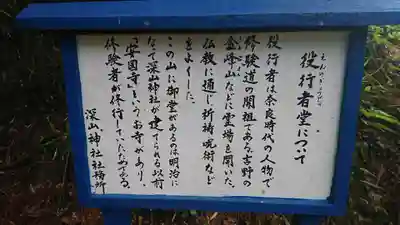 役行者堂について
えんのぎょうじゃどう
役行者は奈良時代の人物で
修験道の開祖である。吉野の
金峰山などに霊場を開いた。
仏教に通じ祈祷、呪術など
をよくした。
この山に御堂があるのは明治に
なて深山神社が建てられる以前
「安国寺」というお寺があり、
修験者が修行していたためである。
深山神社社務所